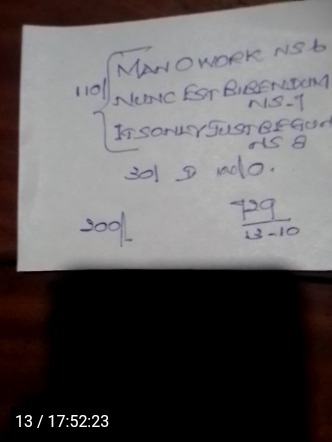 110/ MAN O WORK NS 6
NUNC EST BIBENDUM
NS-7
ITS ONLY JUST BEGUN
NS 8
30/ D
200/-
729
13-10
13 / 17:52:23